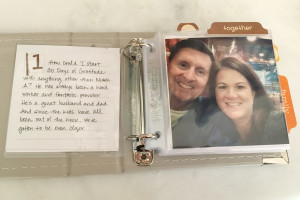 1 How could I start
30 Days of Gratitude
with anything other than
He has always been a hard
worker and fantastic provider.
He's a great husband and dad.
And since the kids have all
been out of the house, we've
gotten to be even closer.
together
family